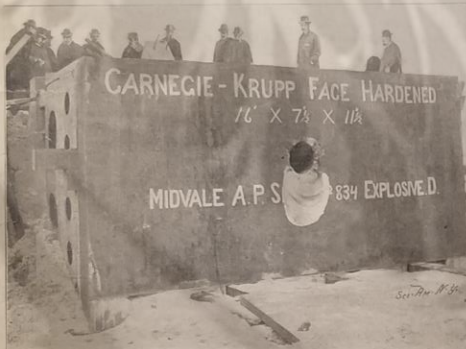 CARNEGIE - KRUPP FACE HARDENED
16' X 7½ X 11½
MIDVALE A. P. S. 834 EXPLOSIVE. D.